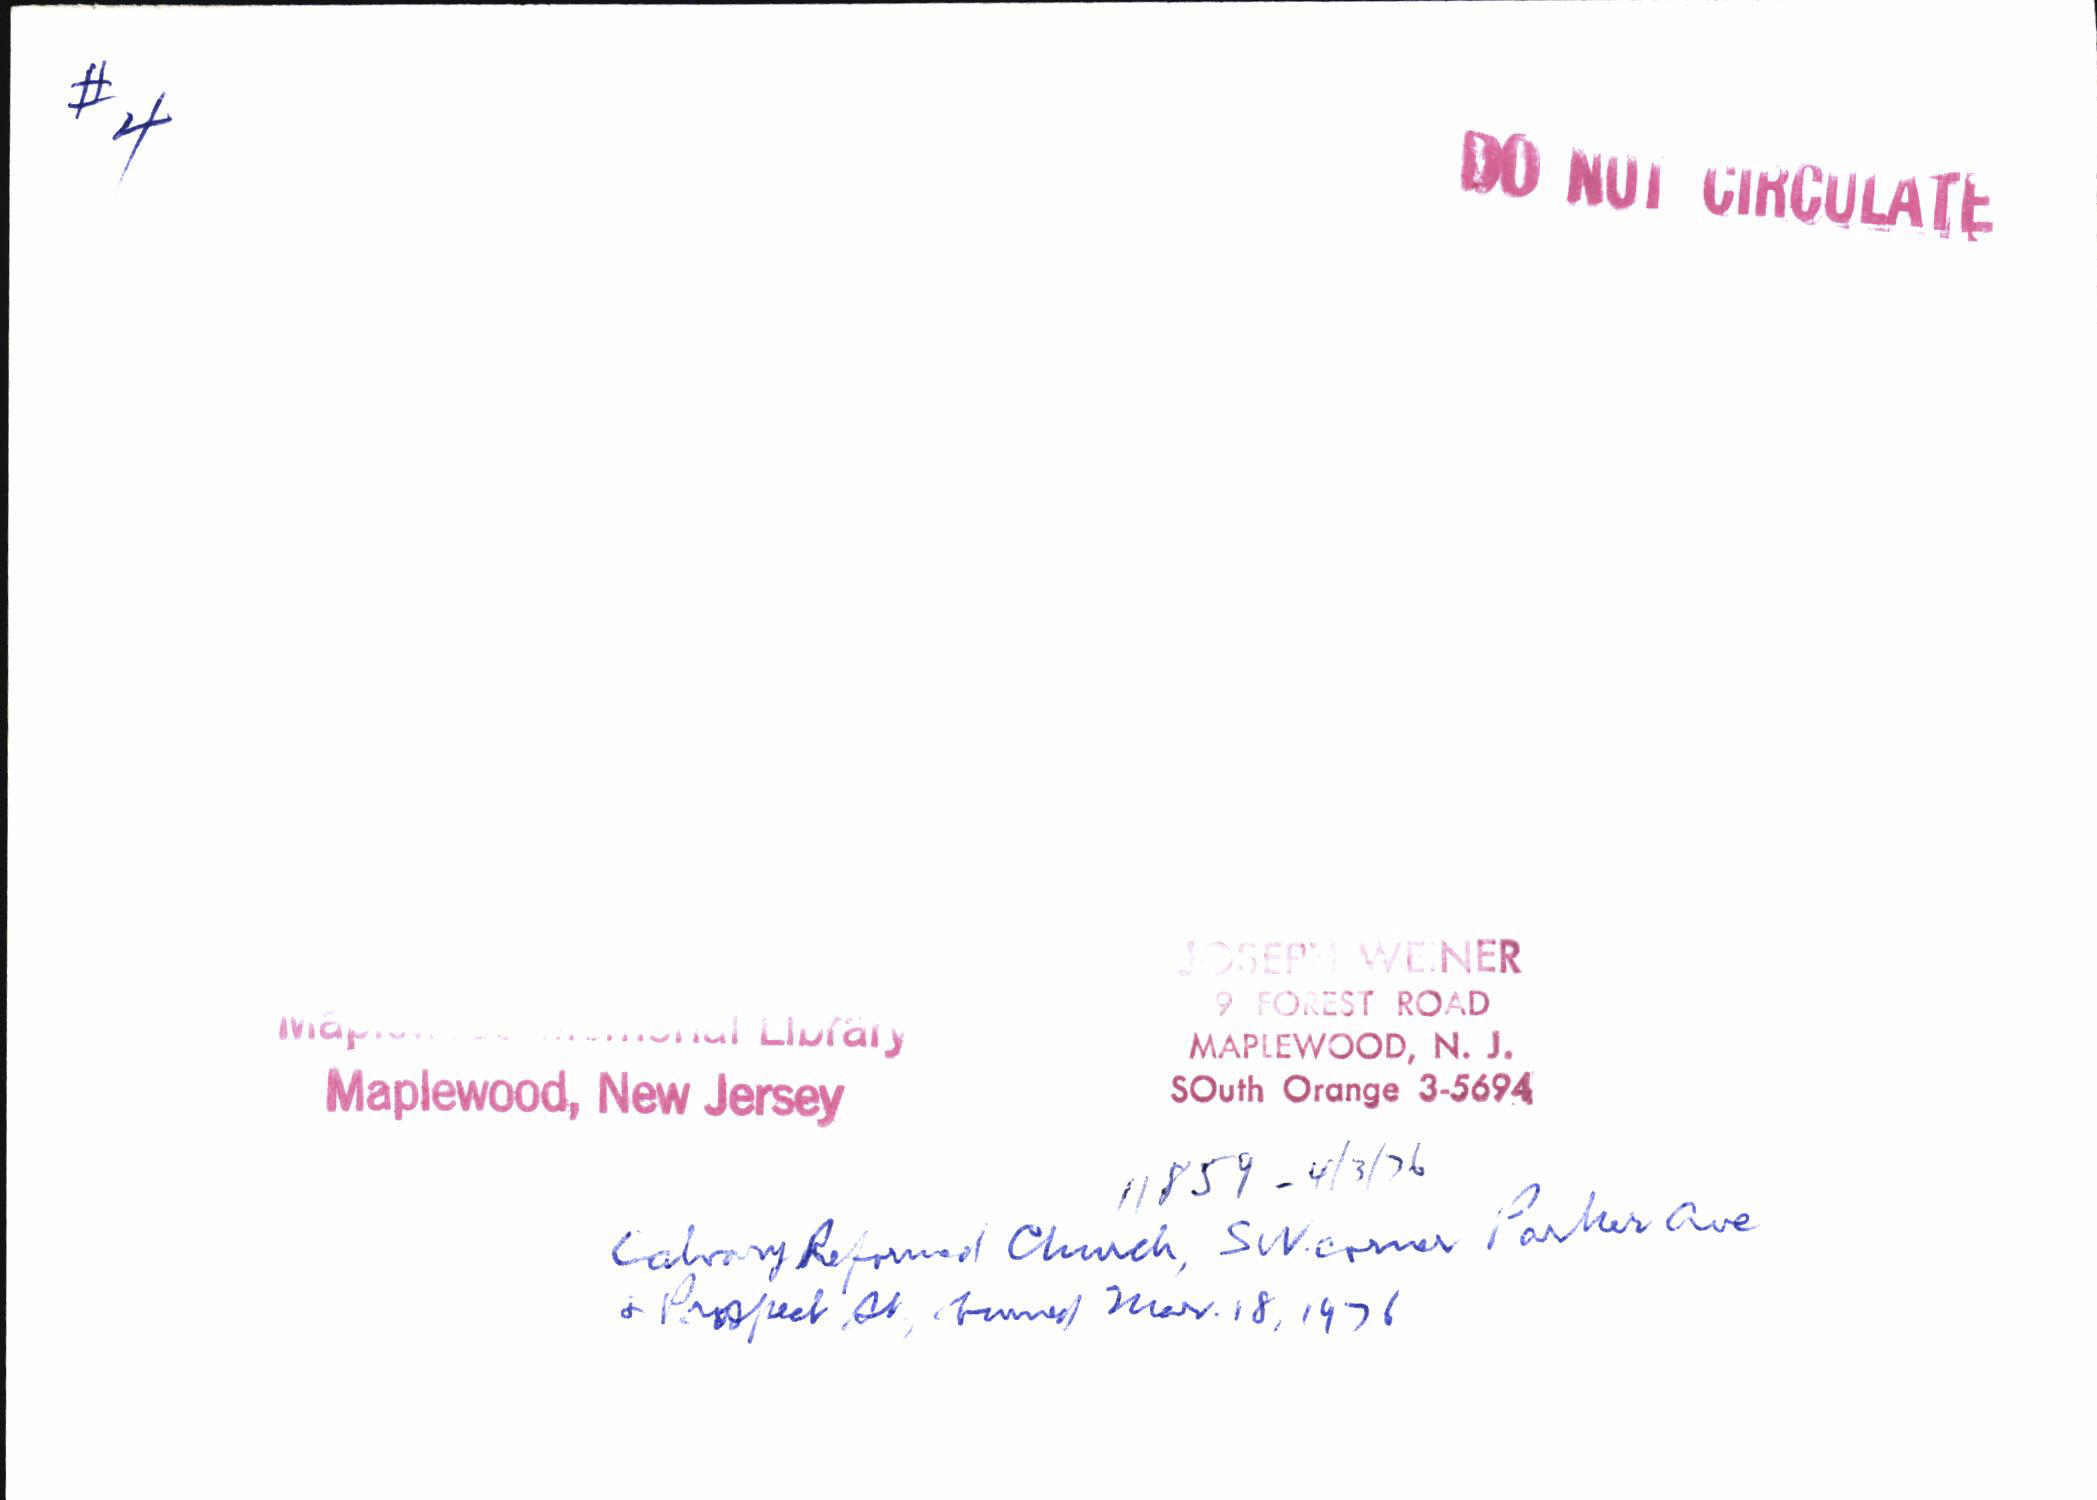 #4
DO NOT CIRCULATE
JOSEPH WEINER
9 FOREST ROAD
MAPLEWOOD, N. J.
SOuth Orange 3-5694
Maplewood Memorial Library
Maplewood, New Jersey
11859 - 4/3/76
Calvary Reformed Church, SW. corner Parker Ave
& Prospect St, burned Mar. 18, 1976